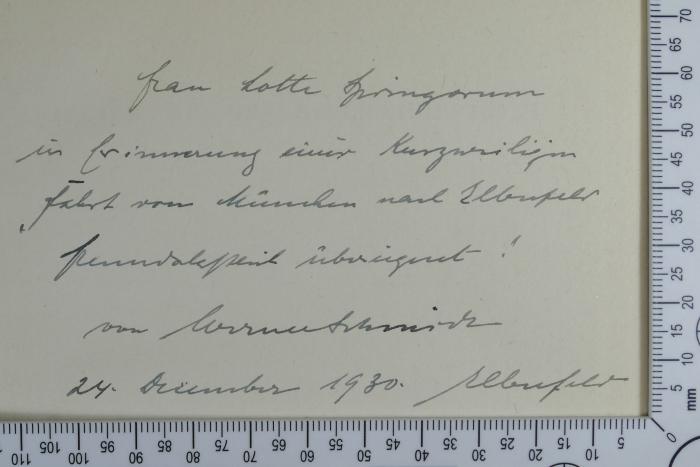 Frau Lotte Springorum
in Erinnerung einer kurzweiligen
Fahrt von München nach Elberfeld
freundschaftlichst übereignet!
von Werner Schmidt
24. Dezember 1930. Elberfeld
70
65
60
55
50
45
40
35
30
25
20
15
10
5
mm
0
110 105 100 95 90 85 80 75 70 65 60 55 50 45 40 35 30 25 20 15 10 5